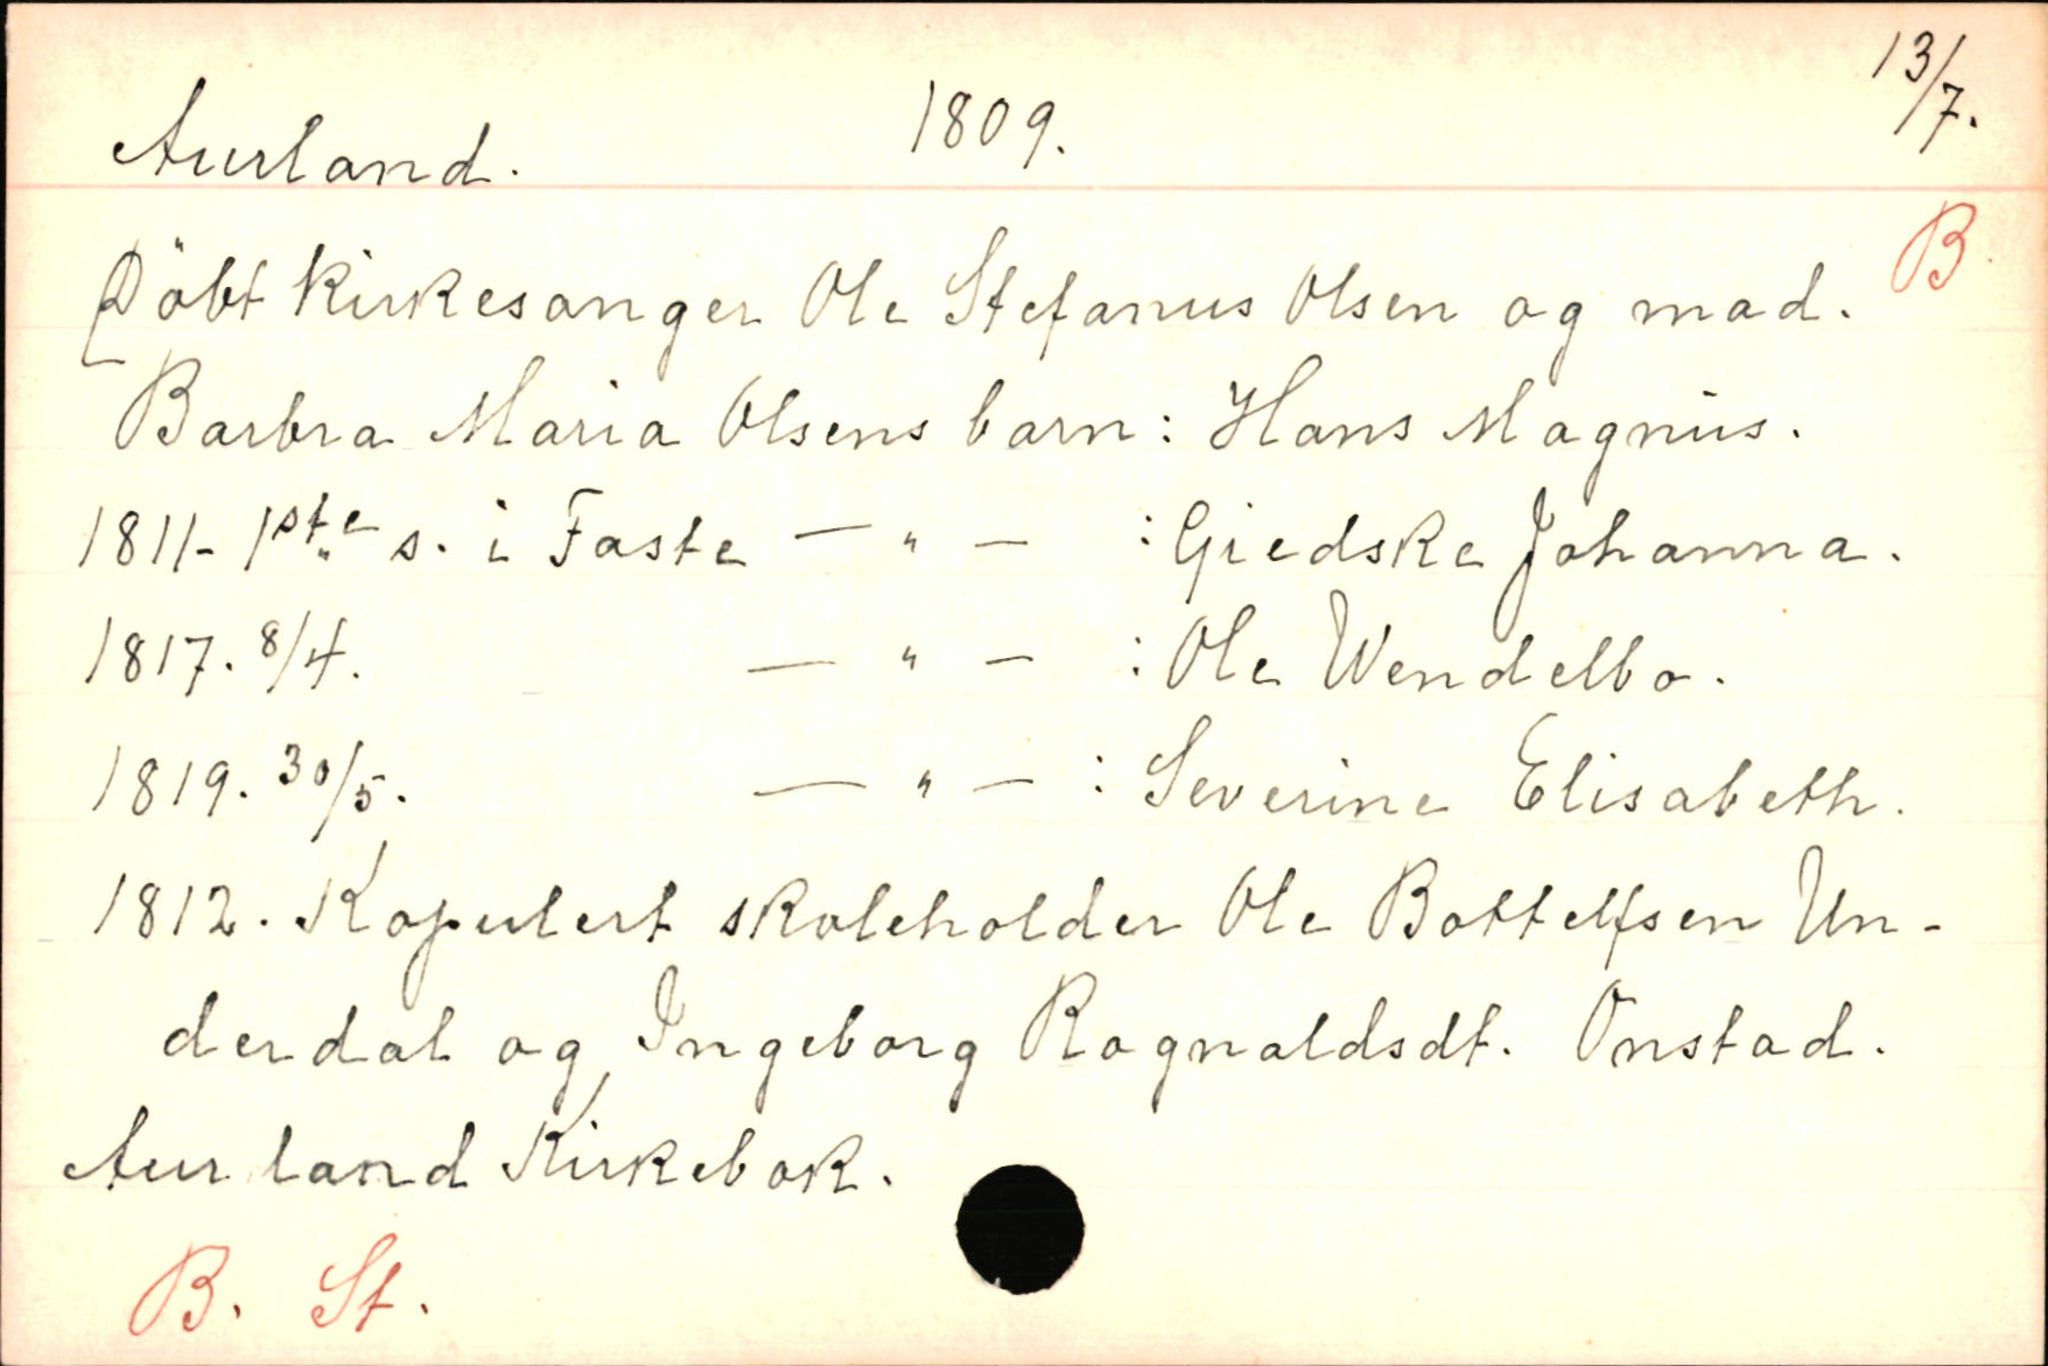 Aurland. 1809. 13/7.
B
Döbt Kirkesanger Ole Stefanus Olsen og mad.
Barbra Maria Olsens barn: Hans Magnus.
1811- 1ste s. i Faste — " — : Giedske Johanna.
1817. 8/4. — " — : Ole Wendelbo.
1819. 30/5. — " — : Severine Elisabeth.
1812. Kopulert skoleholder Ole Bottelfsen Un-
derdal og Ingeborg Ragnaldsdt. Onstad.
Aurland Kirkebok.
B. St.